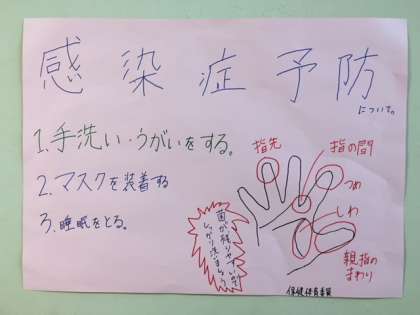 感染症予防
について。
1.手洗い・うがいをする。
2.マスクを装着する
3.睡眠をとる。
指先
指の間
つめ
しわ
親指の
まわり
菌が残りやすいので
しっかり洗いましょう。
保健体育委員